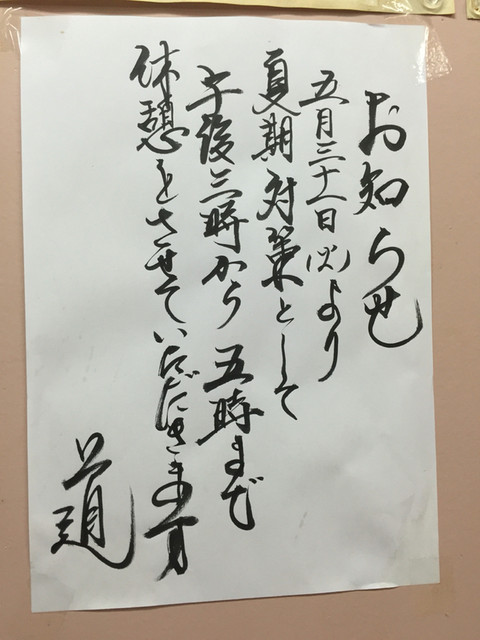 お知らせ
五月三十一日(火)より
夏期対策として
午後三時から五時まで
休憩をさせていただきます